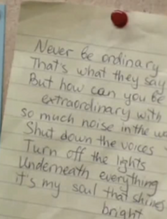 Never be ordinary
That's what they say
But how can you be
extraordinary with
so much noise in the
Shut down the voices
Turn off the lights
Underneath everything
it's my soul that shines
bright